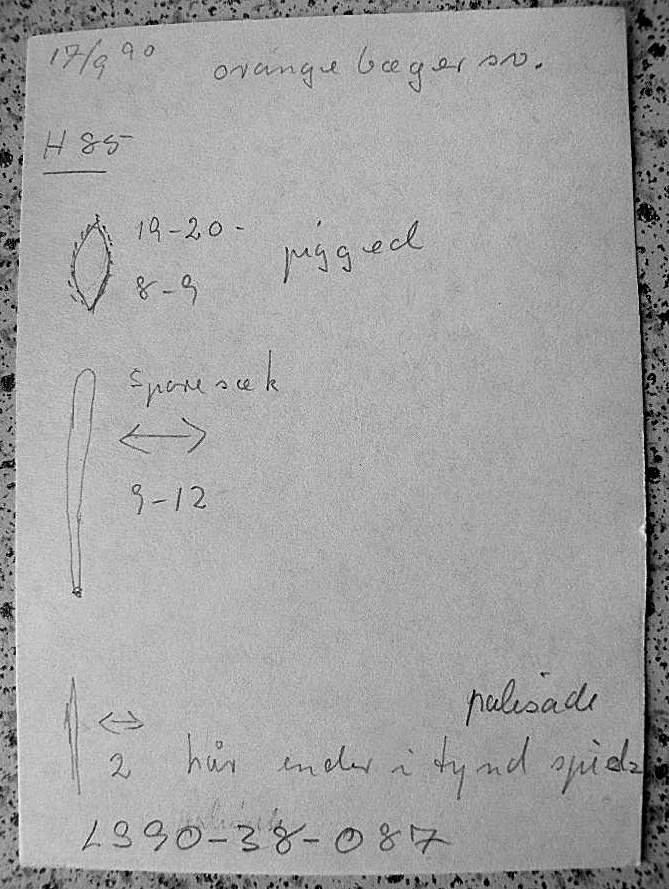 17/9 90 orange bæger sv.
H 85
19-20- pigged
8-9
Sporesæk
9-12
palisade
2 hår ender i tynd spids
1990-38-087